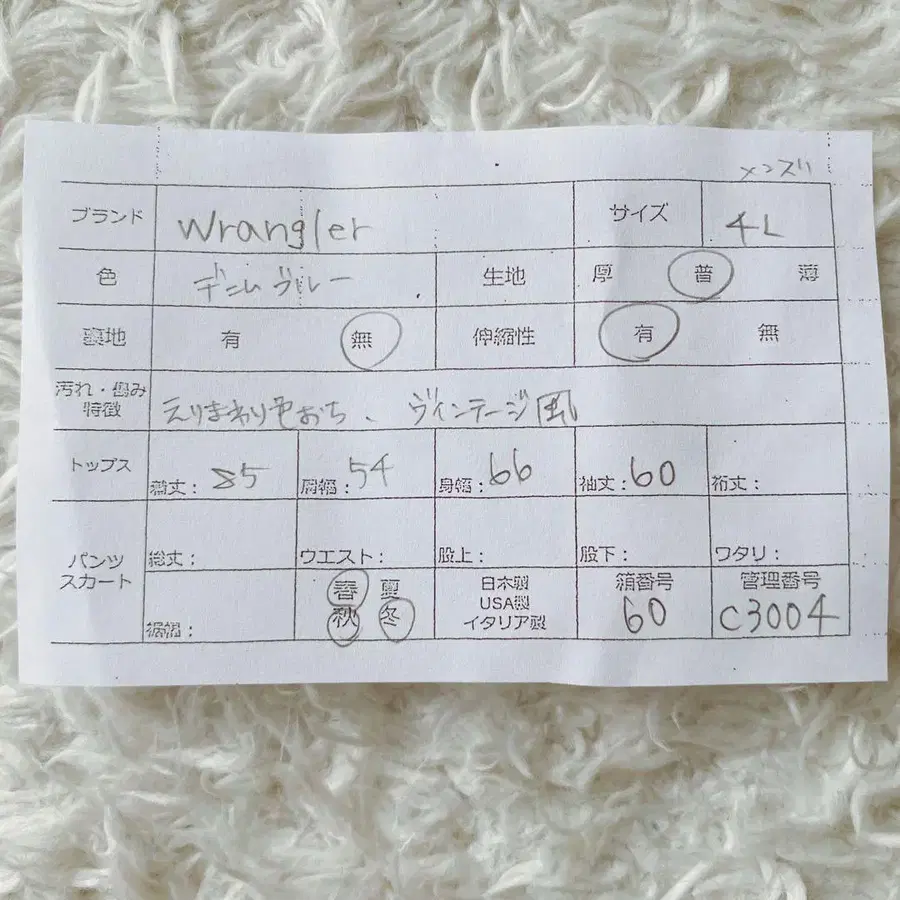 メンズ
ブランド Wrangler サイズ 4L
色 デニムブルー 生地 厚 普 薄
裏地 有 無 伸縮性 有 無
汚れ・傷み
特徴 えりまわり色おち、ヴィンテージ風
トップス 着丈：85 肩幅：54 身幅：66 袖丈：60 裄丈：
パンツ
スカート 総丈： ウエスト： 股上： 股下： ワタリ：
裾幅： 春 夏 日本製 箱番号 管理番号
秋 冬 USA製 60 C3004
イタリア製